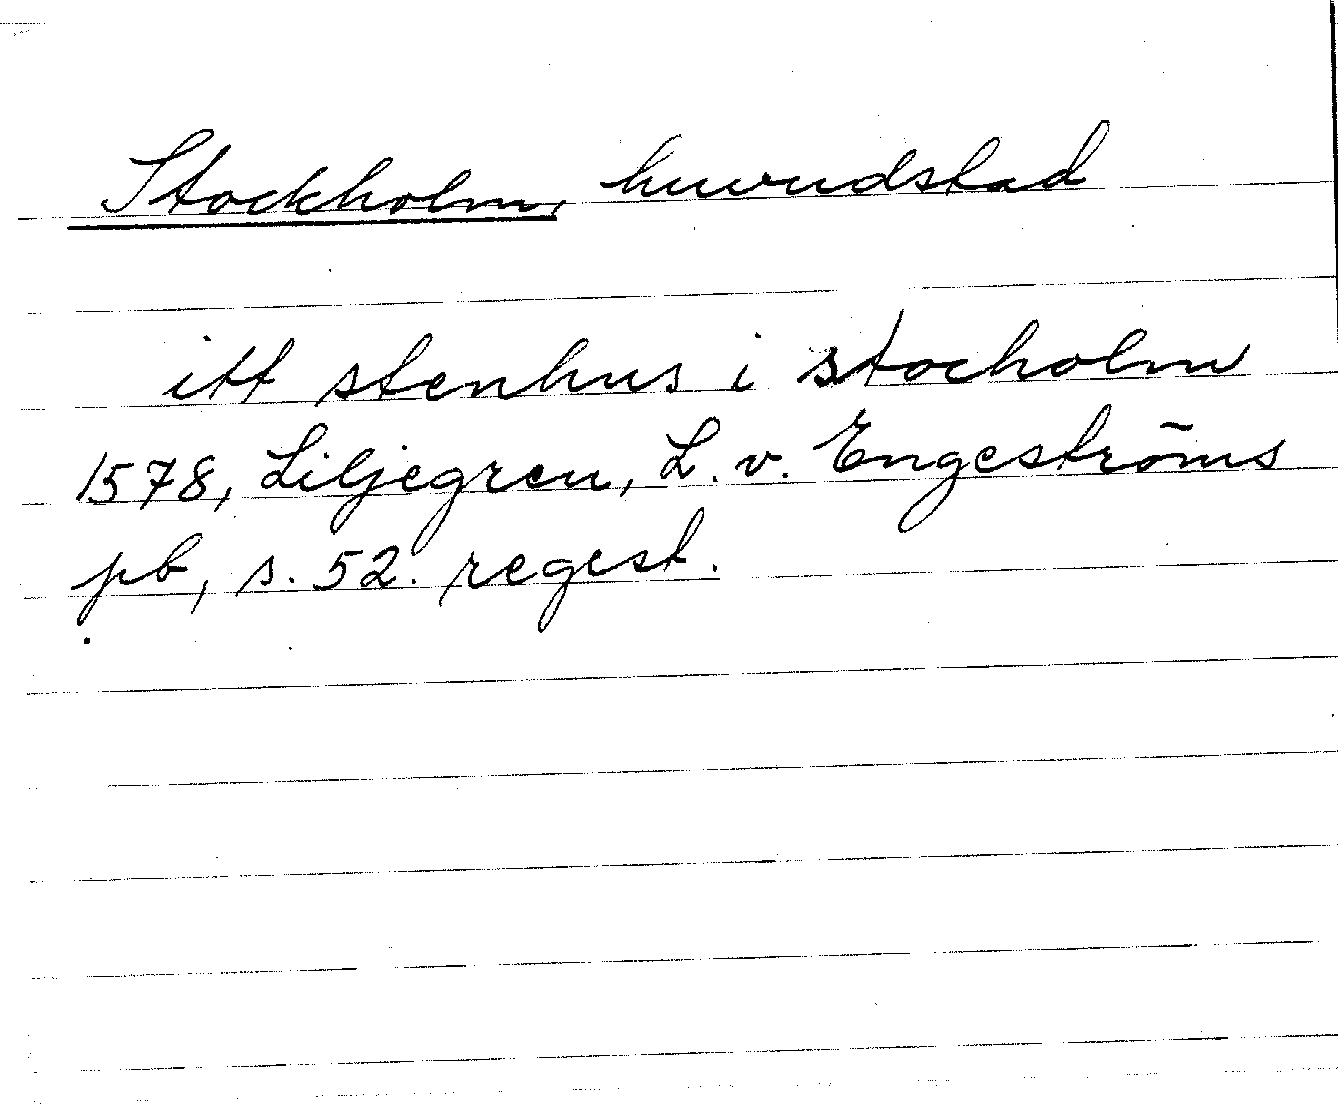 Stockholm, huvudstad
itt stenhus i stocholm
1578, Liljegren, L. v. Engeströms
pb, s. 52. regest.